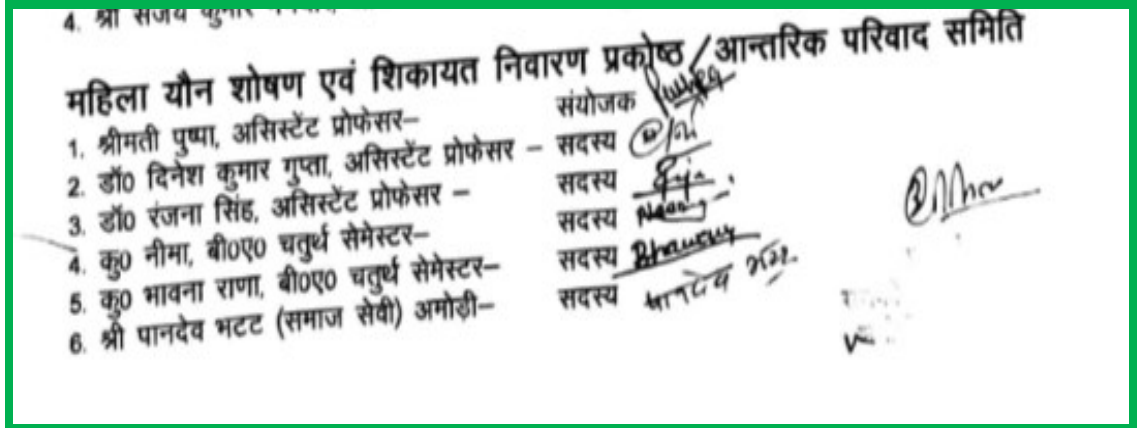 4. श्री संजय कुमार
महिला यौन शोषण एवं शिकायत निवारण प्रकोष्ठ/आन्तरिक परिवाद समिति
1. श्रीमती पुष्पा, असिस्टेंट प्रोफेसर– संयोजक Pushpa
2. डॉ0 दिनेश कुमार गुप्ता, असिस्टेंट प्रोफेसर – सदस्य
3. डॉ0 रंजना सिंह, असिस्टेंट प्रोफेसर – सदस्य
4. कु0 नीमा, बी0ए0 चतुर्थ सेमेस्टर– सदस्य
5. कु0 भावना राणा, बी0ए0 चतुर्थ सेमेस्टर– सदस्य
6. श्री पानदेव भटट (समाज सेवी) अमोड़ी– सदस्य पानदेव भटट